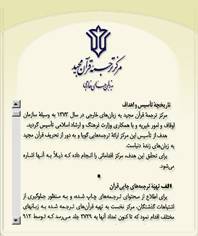 مرکز ترجمه قرآن مجید
به زبان‌های خارجی
تاریخچهٔ تأسیس و اهداف
مرکز ترجمهٔ قرآن مجید به زبان‌های خارجی در سال ۱۳۷۳ به وسیلهٔ سازمان
اوقاف و امور خیریه و با همکاری وزارت فرهنگ و ارشاد اسلامی تأسیس گردید.
هدف از تأسیس این مرکز ارائهٔ ترجمه‌هایی گویا و به دور از تحریف قرآن مجید
به زبان‌های زندهٔ دنیاست.
برای تحقق این هدف، مرکز اقداماتی را انجام داده کـه ذیـلاً بـه آنهـا اشـاره
می‌شود.
الف. تهیهٔ ترجمه‌های چاپی قرآن
برای اطلاع از محتوای ترجمـه‌های چـاپ شـده و بـه منظور جلوگیری از
اشتباهات گذشتگان، مرکز نخست به تهیه قرآن‌های ترجـمه شـده به زبانهای
مختلف اقدام نمود که تاکنون تعداد آنها به جلد می‌رسد کـه توسط